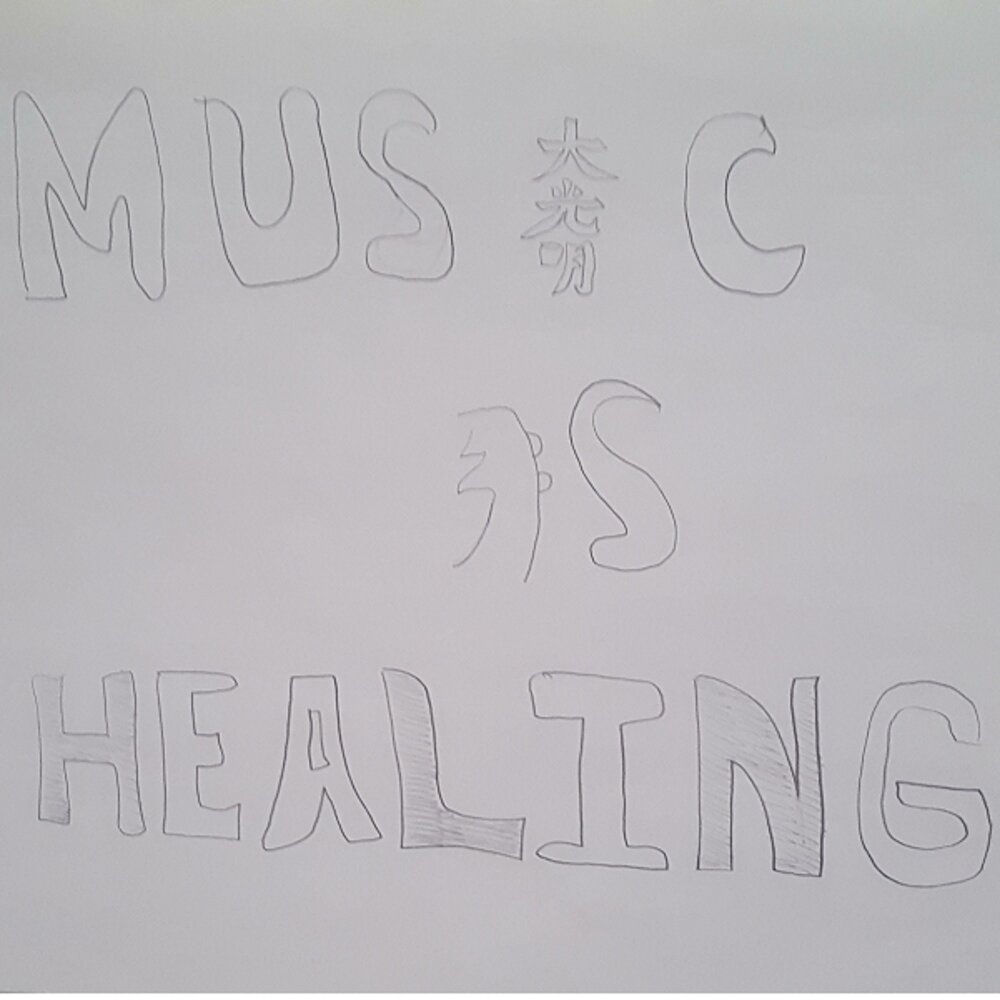 MUS大光明C
S
HEALING